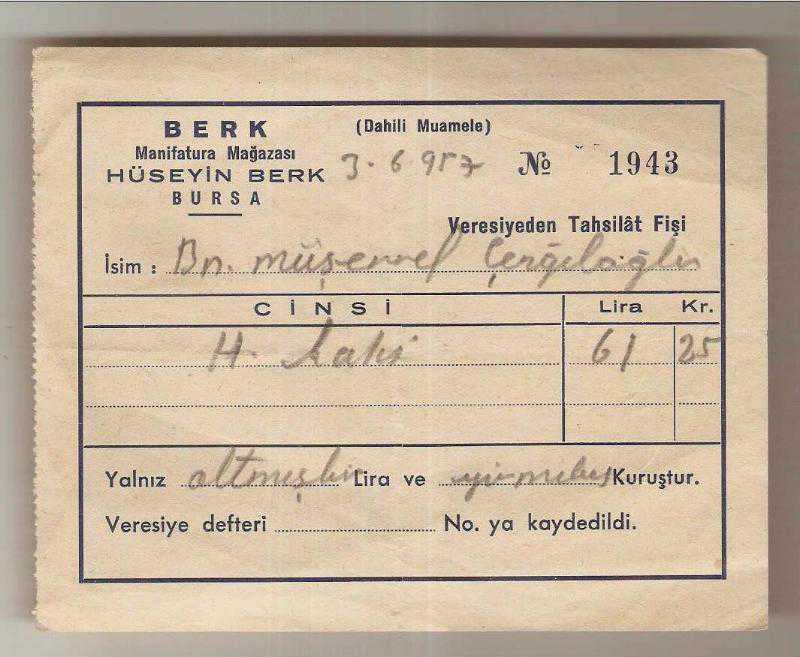 BERK
(Dahili Muamele)
Manifatura Mağazası
HÜSEYİN BERK
3.6.957 № 1943
BURSA
Veresiyeden Tahsilât Fişi
İsim : Bn. Müşerref
CİNSİ Lira Kr.
H. 61 25
Yalnız altmışbir Lira ve yirmibeş Kuruştur.
Veresiye defteri No. ya kaydedildi.